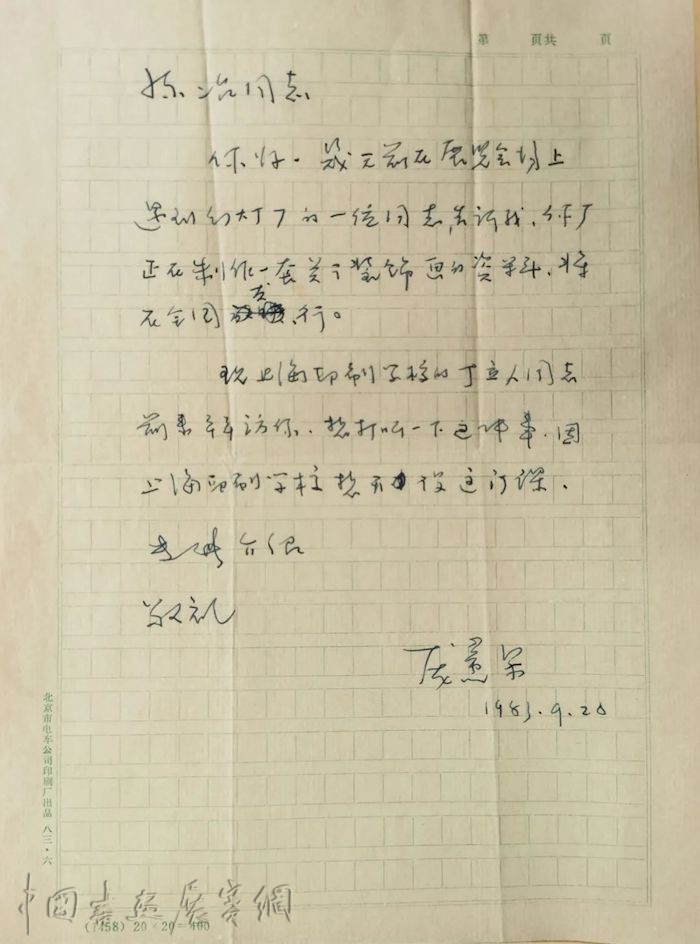 第　页共　页
冶同志
你好。几天前在展览会场上
遇到幻灯厂的一位同志,告诉我,你厂
正在制作一套关于装饰画的资料,将
在全国发行。
现上海印刷学校的丁立人同志
前来拜访你,想打听一下这件事,因
上海印刷学校想开设这门课。
专此介绍
敬礼
1983.9.20
北京市电车公司印刷厂出品 八三·六
中国书画展赛網
(1458) 20×20=400